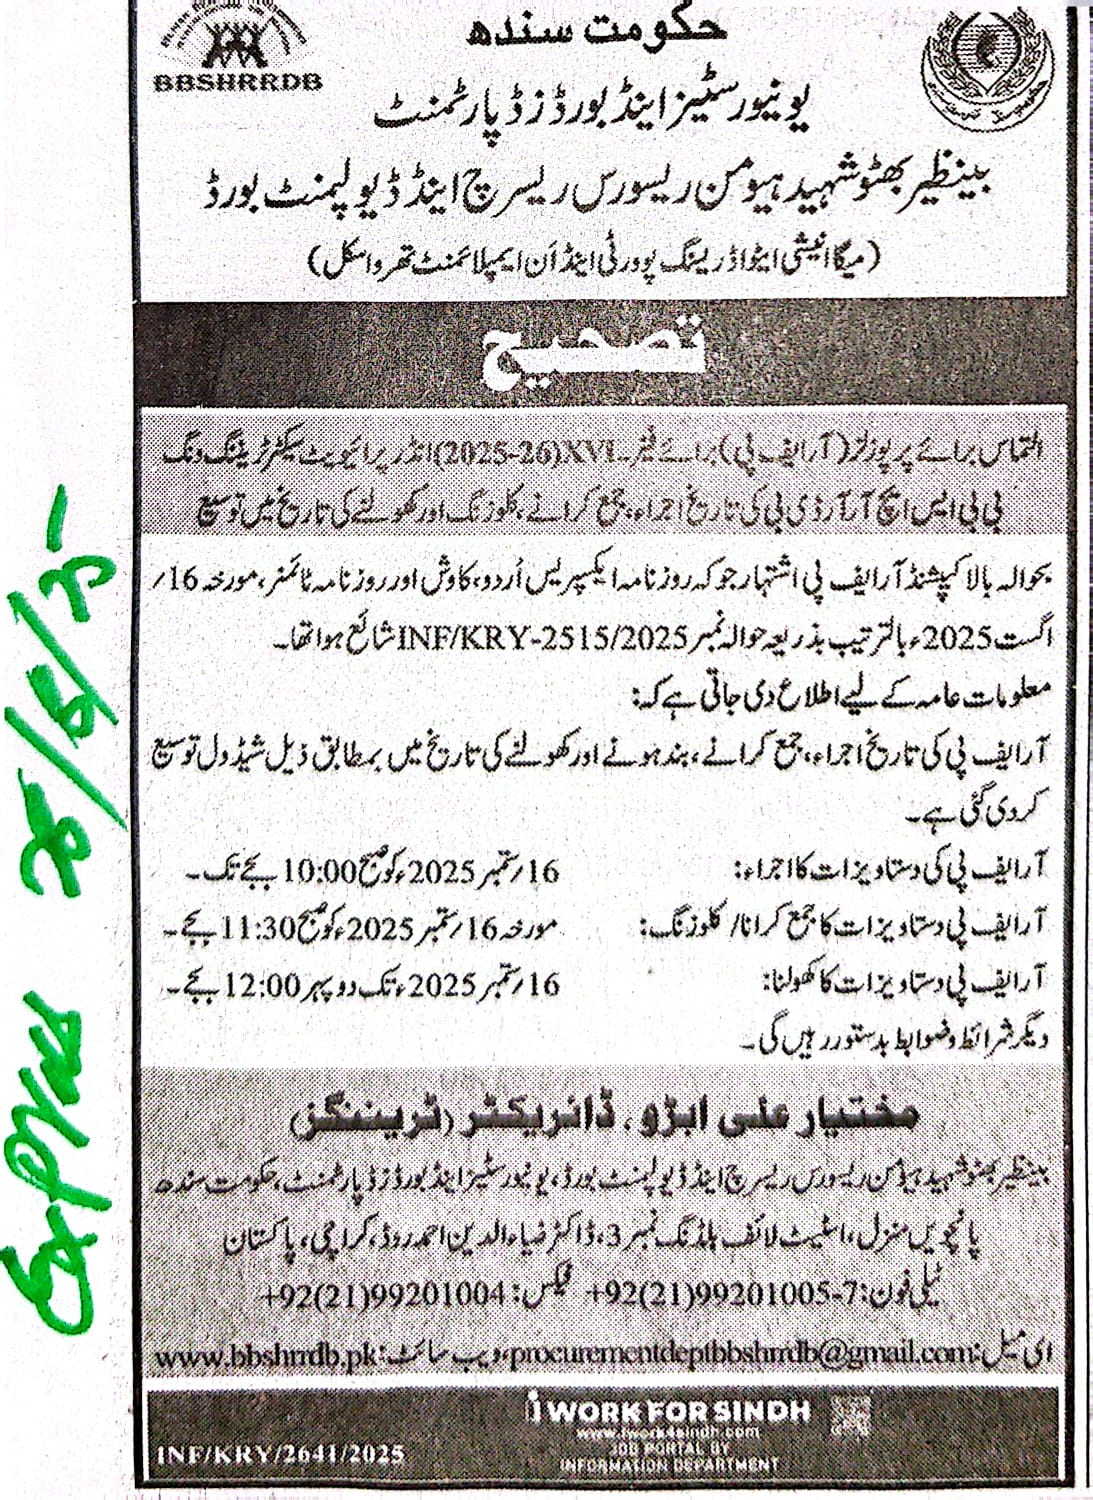 حکومت سندھ
BBSHRRDB
یونیورسٹیز اینڈ بورڈز ڈپارٹمنٹ
بینظیر بھٹو شہید ہیومن ریسورس ریسرچ اینڈ ڈیولپمنٹ بورڈ
(میگا انیشی ایٹو اڈریسنگ پوورٹی اینڈ اَن ایمپلائمنٹ تھرو اسکل)
تصحیح
التماس برائے پرپوزلز (آر ایف پی) برائے فیز۔XVI(2025-26) انڈر پرائیویٹ سیکٹر ٹریننگ ونگ
بی بی ایس ایچ آر آر ڈی بی کی تاریخ اجراء، جمع کرانے، کلوزنگ اور کھولنے کی تاریخ میں توسیع
بحوالہ بالا کیپشنڈ آر ایف پی اشتہار جو کہ روزنامہ ایکسپریس اُردو، کاوش اور روزنامہ ٹائمز، مورخہ 16/
اگست 2025ء بالترتیب بذریعہ حوالہ نمبر INF/KRY-2515/2025 شائع ہوا تھا۔
معلومات عامہ کے لیے اطلاع دی جاتی ہے کہ:
آر ایف پی کی تاریخ اجراء، جمع کرانے، بند ہونے اور کھولنے کی تاریخ میں بمطابق ذیل شیڈول توسیع
کردی گئی ہے۔
آر ایف پی کی دستاویزات کا اجراء: 16/ستمبر 2025ء کو صبح 10:00 بجے تک۔
آر ایف پی دستاویزات کا جمع کرانا/کلوزنگ: مورخہ 16/ستمبر 2025ء کو صبح 11:30 بجے۔
آر ایف پی دستاویزات کا کھولنا: 16/ستمبر 2025ء تک دوپہر 12:00 بجے۔
دیگر شرائط و ضوابط بدستور رہیں گی۔
مختیار علی ابڑو، ڈائریکٹر (ٹریننگز)
بینظیر بھٹو شہید ہیومن ریسورس ریسرچ اینڈ ڈیولپمنٹ بورڈ، یونیورسٹیز اینڈ بورڈز ڈپارٹمنٹ، حکومت سندھ
پانچویں منزل، اسٹیٹ لائف بلڈنگ نمبر 3، ڈاکٹر ضیاء الدین احمد روڈ، کراچی، پاکستان
ٹیلی فون: +92(21)99201005-7 فیکس: +92(21)99201004
ای میل: procurementdeptbbshrrdb@gmail.com، ویب سائٹ: www.bbshrrdb.pk
i WORK FOR SINDH
www.iwork4sindh.com
JOB PORTAL BY
INFORMATION DEPARTMENT
INF/KRY/2641/2025
Express 28/8/25